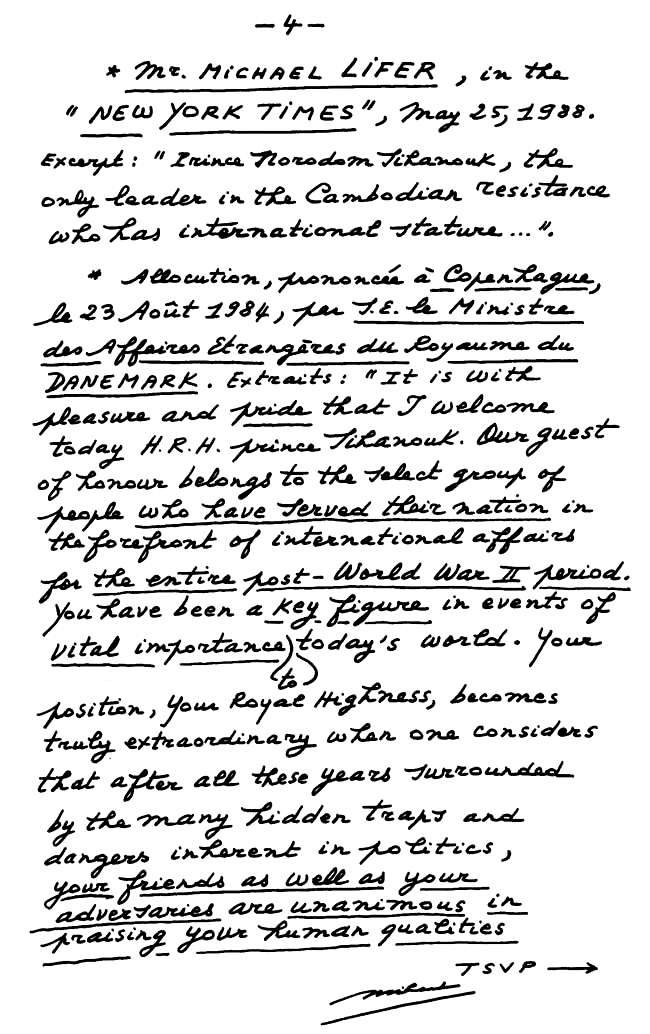 - 4 -
* Mr. MiCHAEL LiFER, in the
" NEW YORK TiMES", May 25, 1988.
Excerpt : " Prince Norodom Sihanouk, the
only leader in the Cambodian resistance
who has international stature ... ".
* Allocution, prononcée à Copenhague,
le 23 Août 1984, par S.E. le Ministre
des Affaires Etrangères du Royaume du
DANEMARK. Extraits : " It is with
pleasure and pride that I welcome
today H.R.H. prince Sihanouk. Our guest
of honour belongs to the select group of
people who have served their nation in
the forefront of international affairs
for the entire post - World War II period.
You have been a key figure in events of
vital importance today's world. Your
to
position, Your Royal Highness, becomes
truly extraordinary when one considers
that after all these years surrounded
by the many hidden traps and
dangers inherent in politics,
your friends as well as your
adversaries are unanimous in
praising your human qualities
TSVP →